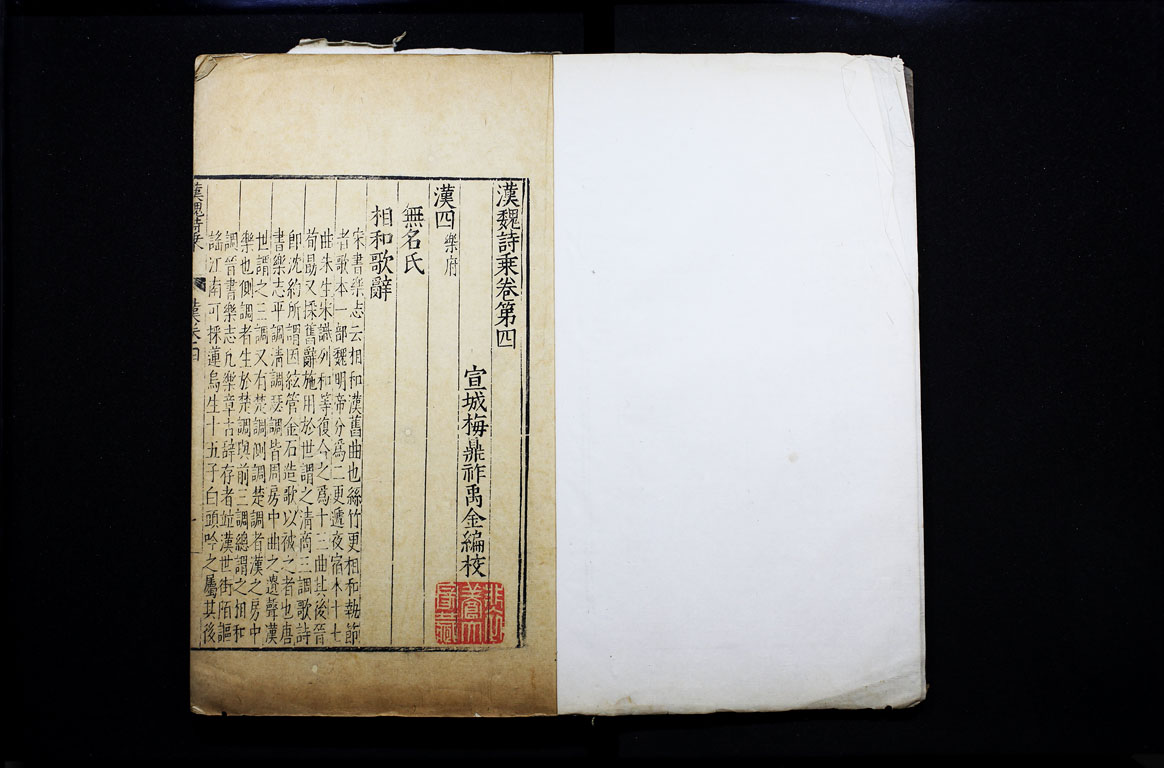 漢魏詩乘卷第四
宣城梅鼎祚禹金編校
漢四 樂府
無名氏
相和歌辭
宋書樂志云相和漢舊曲也絲竹更相和執節
者歌本一部魏明帝分爲二更遞夜宿本十七
曲朱生宋識列和等復合之爲十三曲其後晉
荀勗又採舊辭施用於世謂之清商三調歌詩
卽沈約所謂因絃管金石造歌以被之者也唐
書樂志平調清調瑟調皆周房中曲之遺聲漢
世謂之三調又有楚調側調楚調者漢之房中
樂也側調者生於楚調與前三調總謂之相和
調晉書樂志凡樂章古辭存者竝漢世街陌謳
謠江南可採蓮烏生十五子白頭吟之屬其後
漢魏詩乘
漢卷四